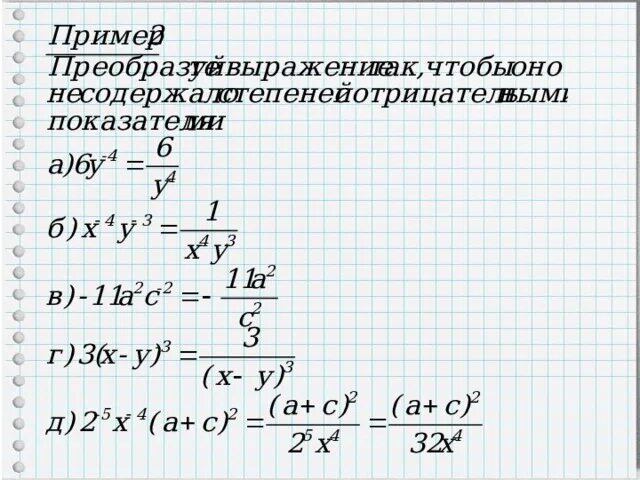 Пример 2
Преобразуйте выражение так, чтобы оно
не содержало степеней с отрицательными
показателями
а) 6y⁻⁴ = 6/y⁴
б) x⁻⁴y⁻³ = 1/(x⁴y³)
в) -11a²c⁻² = - 11a²/c²
г) 3(x - y)⁻³ = 3/(x - y)³
д) 2⁻⁵x⁻⁴(a + c)² = (a + c)²/(2⁵x⁴) = (a + c)²/(32x⁴)